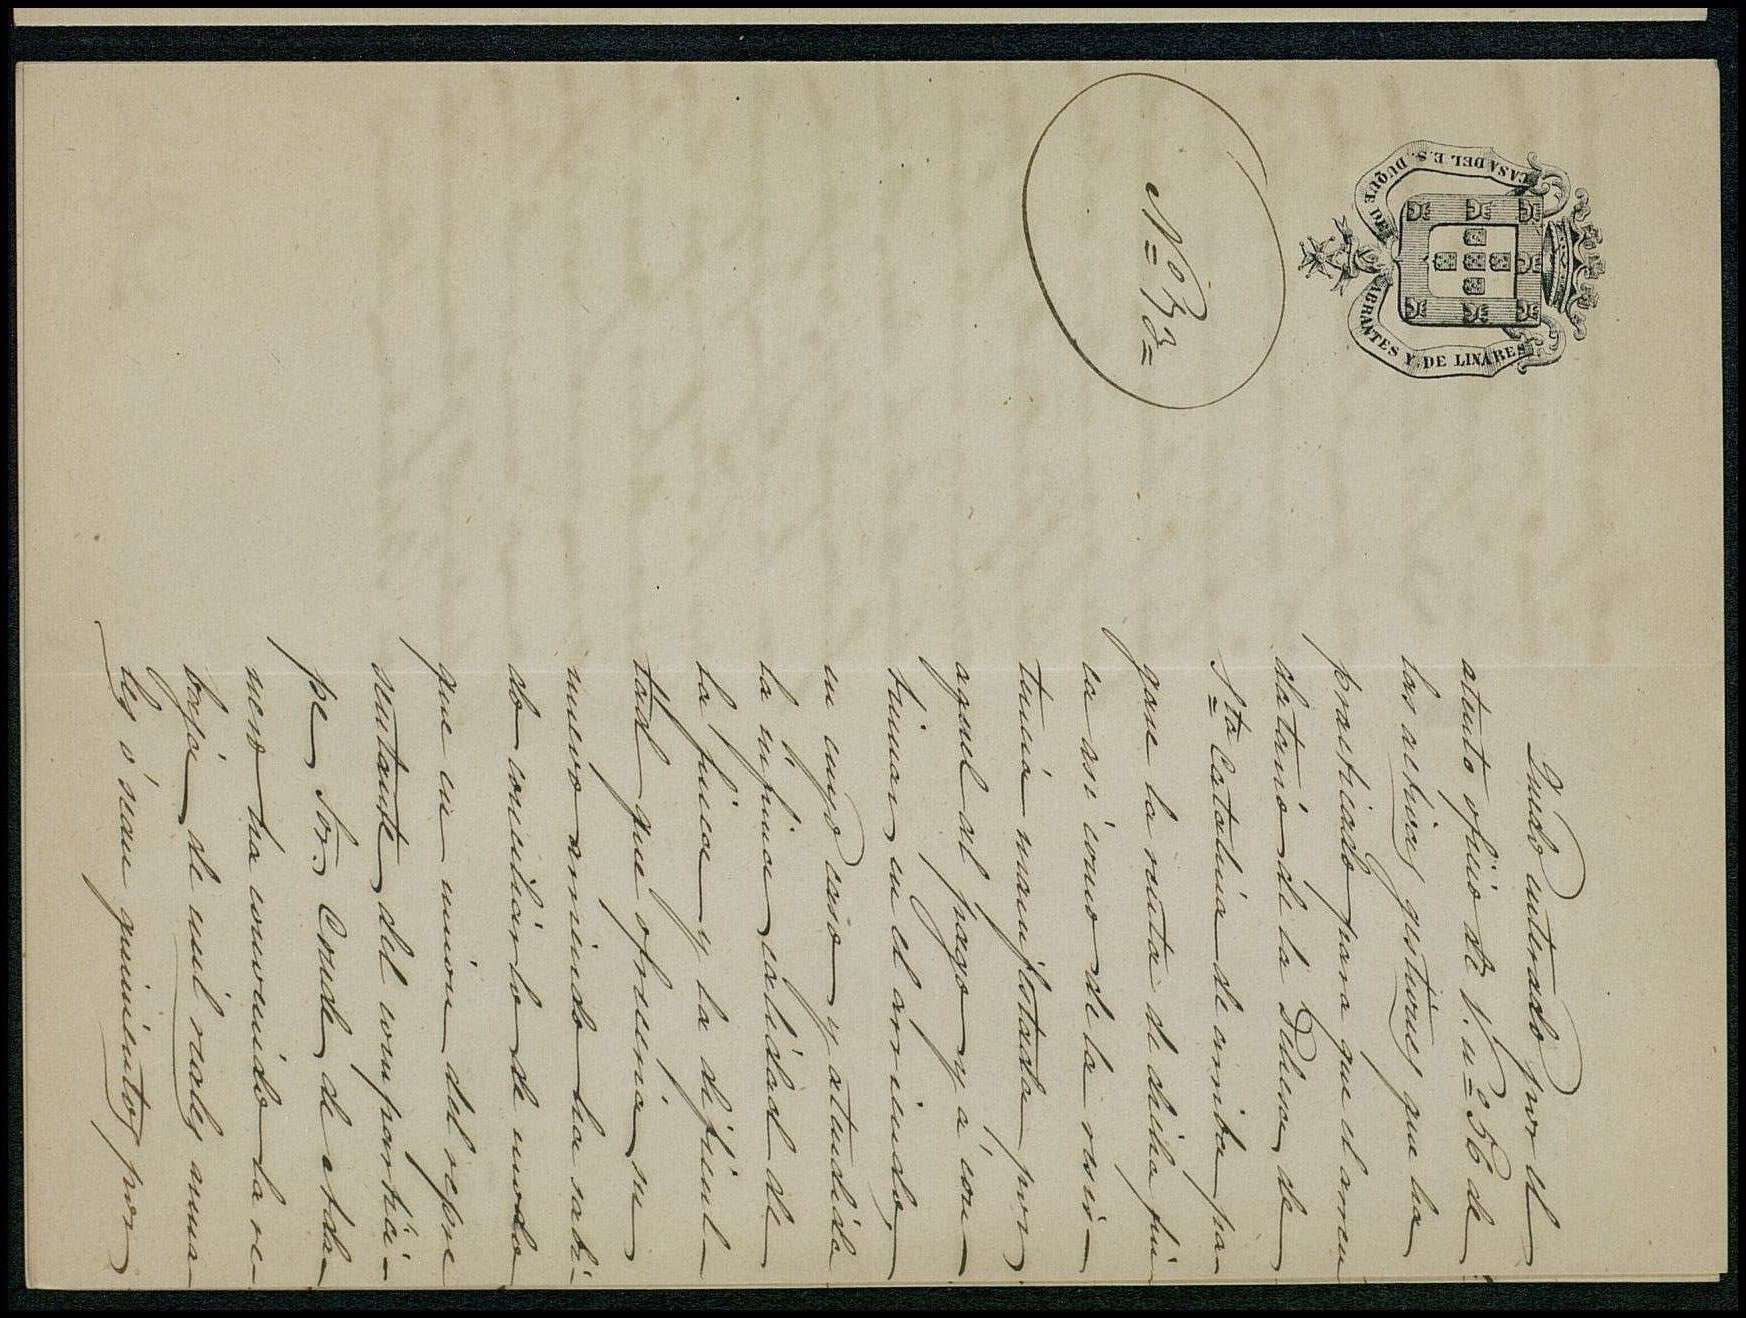 CASA DEL E. S. DUQUE DE ABRANTES Y DE LINARES
Nº 33=
Quedo enterado por el
atento oficio de V. nº 56 de
las activas gestiones que ha
practicado para que el arren
datario de la Dehesa de
Sta Catalina de arriba pa-
gase la renta de dicha fin
ca asi como de la resis-
tencia manifestada por
aquel al pago y á con
tinuar en el arriendo,
en cuyo caso y atendida
la infima calidad de
la finca y la dificul-
tad que ofreceria su
nuevo arriendo ha sabi-
do conciliarlo de modo
que en union del repre
sentante del compartici-
pe Sor. Conde de
nero ha convenido la re-
baja de mil reales anua-
les ó sean quinientos por